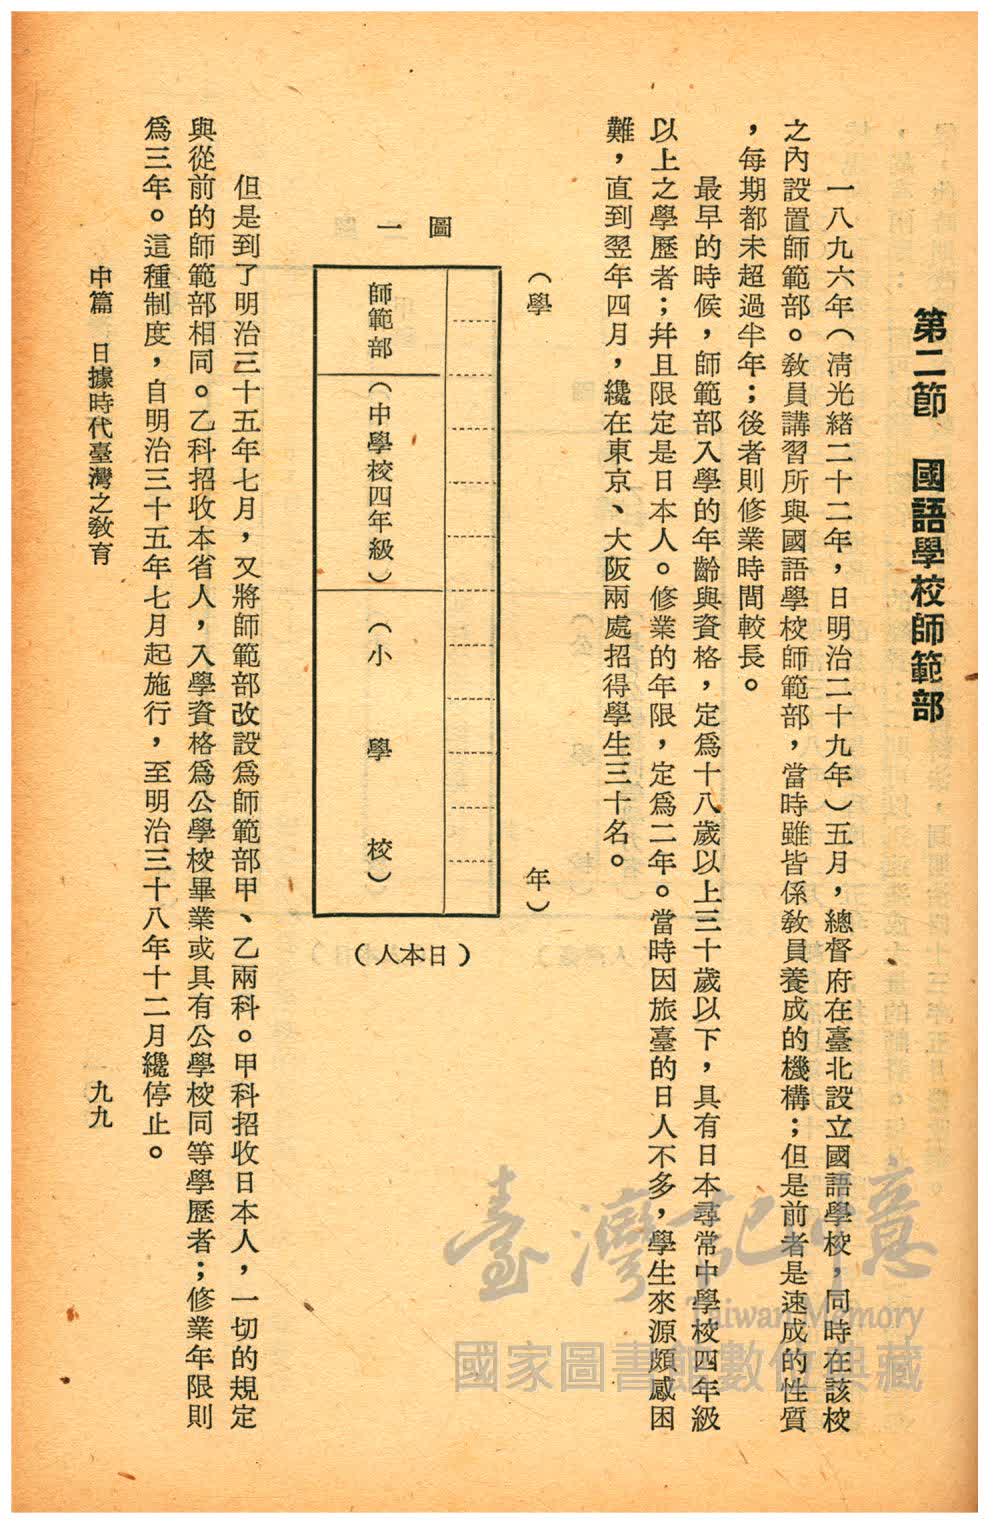 第二節　國語學校師範部
一八九六年（淸光緒二十二年，日明治二十九年）五月，總督府在臺北設立國語學校，同時在該校
之內設置師範部。教員講習所與國語學校師範部，當時雖皆係教員養成的機構；但是前者是速成的性質
，每期都未超過半年；後者則修業時間較長。
最早的時候，師範部入學的年齡與資格，定爲十八歲以上三十歲以下，具有日本尋常中學校四年級
以上之學歷者；幷且限定是日本人。修業的年限，定爲二年。當時因旅臺的日人不多，學生來源頗感困
難，直到翌年四月，纔在東京、大阪兩處招得學生三十名。
（學　年）
圖一
師範部
（中學校四年級）
（小學校）
（日本人）
但是到了明治三十五年七月，又將師範部改設爲師範部甲、乙兩科。甲科招收日本人，一切的規定
與從前的師範部相同。乙科招收本省人，入學資格爲公學校畢業或具有公學校同等學歷者；修業年限則
爲三年。這種制度，自明治三十五年七月起施行，至明治三十八年十二月纔停止。
中篇　日據時代臺灣之敎育
九九
臺灣記憶
Taiwan Memory
國家圖書館數位典藏